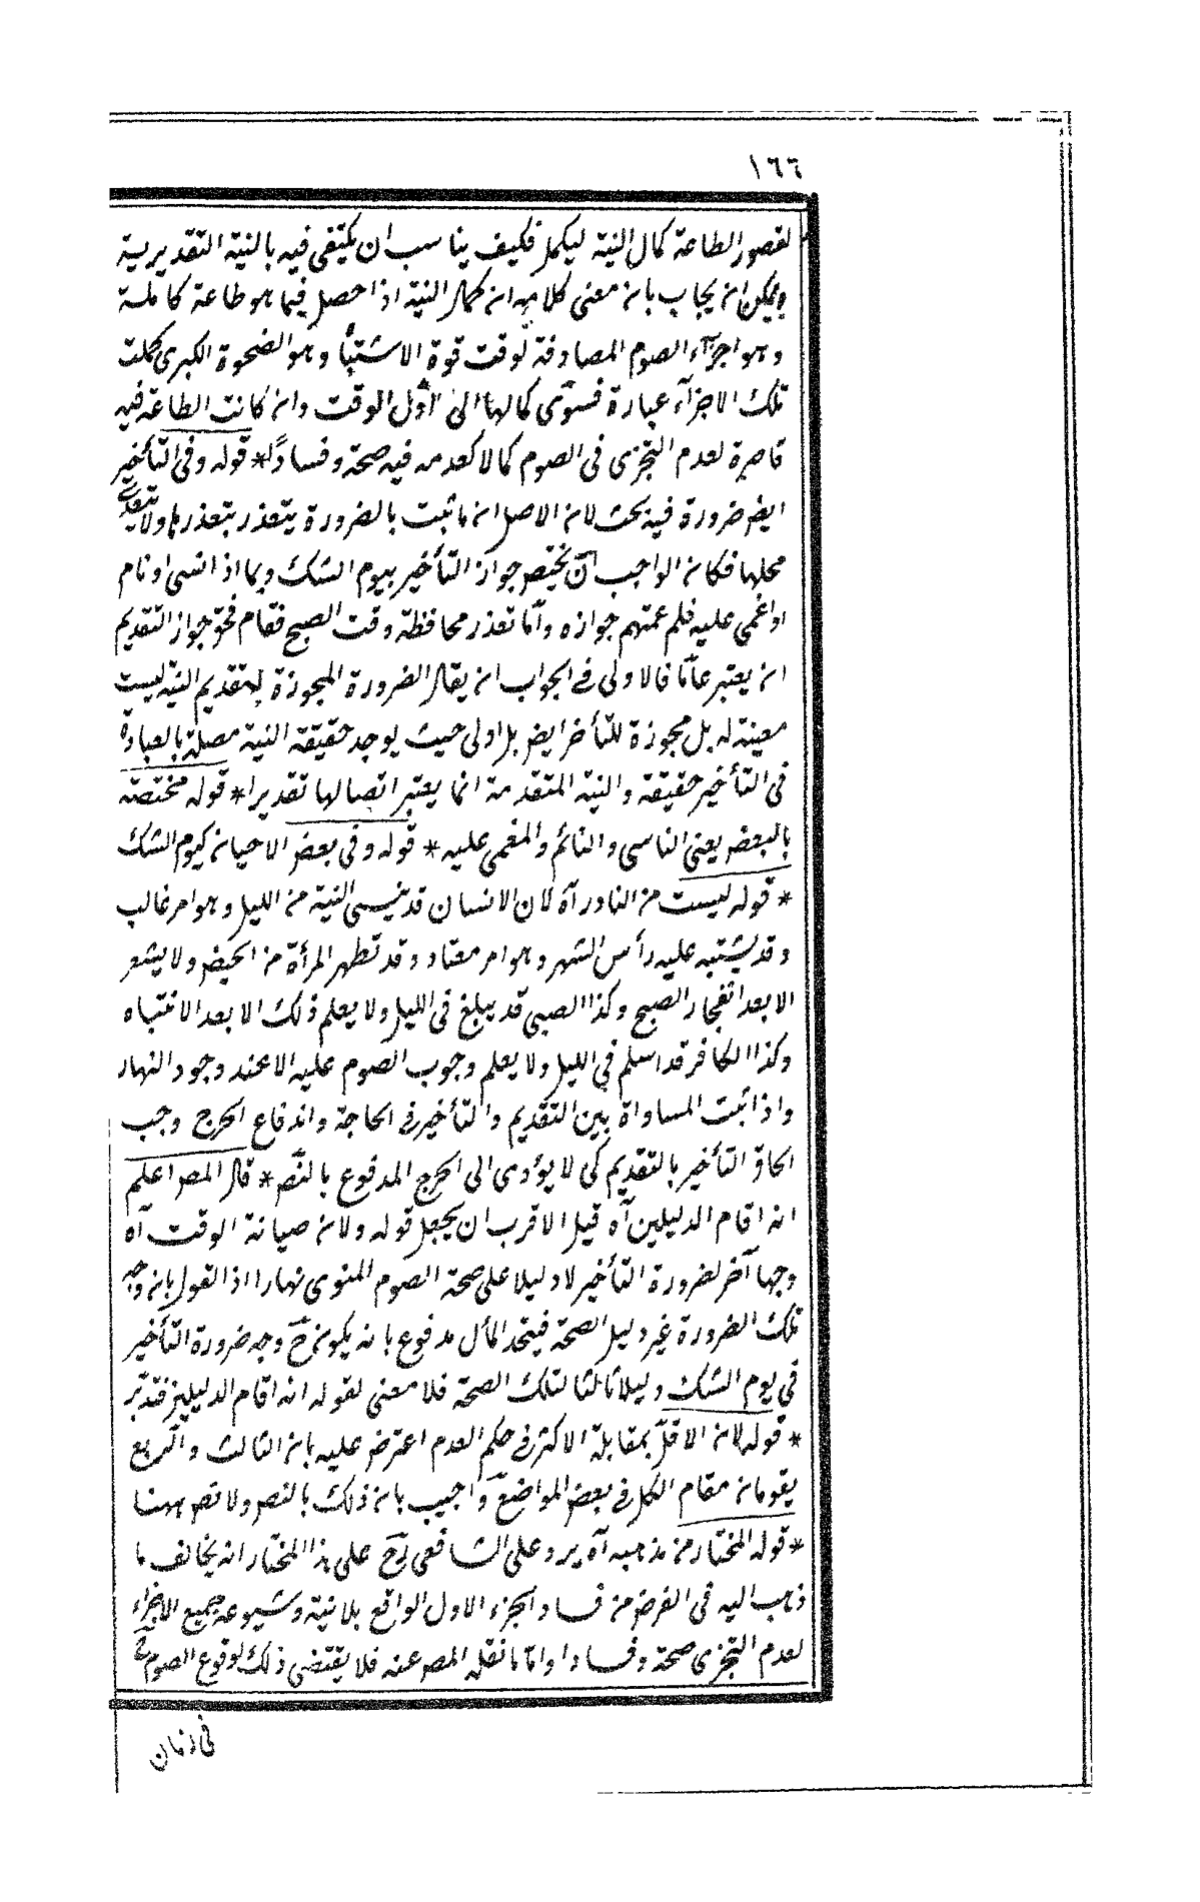 ١٦٦
لقصور الطاعة كمال النية ليكمل فكيف يناسب ان يكتفى فيه بالنية التقديرية
ويمكن ان يجاب بان معنى كلامه ان كمال النية اذا حصل فيما هو طاعة كاملة
وهو اجزاء الصوم المصادفة لوقت قوة الاشتهاء وهو الضحوة الكبرى كملت
تلك الاجزآء عبادة فسرى كمالها الى اول الوقت وان كانت الطاعة فيه
قاصرة لعدم التجزى فى الصوم كمالا كعدمه فيه صحة وفسادًا * قوله وفى التأخير
ايض ضرورة فيه بحث لان الاصل ان ما ثبت بالضرورة يتعذر بتعذرها ولا يتعدى
محلها فكان الواجب ان يختص جواز التأخير بيوم الشك وبما اذا نسى او نام
او اغمى عليه فلم عمتهم جوازه وامّا تعذر محافظة وقت الصبح فقام فحق جواز التقديم
ان يعتبر عامّا فالاولى فى الجواب ان يقال الضرورة المجوزة لتقديم النية ليست
معينة له بل مجوزة للتأخر ايض بل اولى حيث يوجد حقيقة النية مصلة بالعبادة
فى التأخير حقيقة والنية المتقدمة انما يعتبر اتصالها تقديرا * قوله مختصة
بالبعض يعنى الناسى والنائم والمغمى عليه * قوله وفى بعض الاحيان كيوم الشك
* قوله ليست من النادر آه لان الانسان قد ينسى النية من الليل وهو امر غالب
وقد يشتبه عليه رأس الشهر وهو امر معتاد وقد تطهر المرأة من الحيض ولا يشعر
الا بعد انفجار الصبح وكذا الصبى قد يبلغ فى الليل ولا يعلم ذلك الا بعد الانتباه
وكذا الكافر قد اسلم فى الليل ولا يعلم وجوب الصوم عليه الا عند وجود النهار
واذا ثبت المساواة بين التقديم والتأخير فى الحاجة واندفاع الحرج وجب
الحاق التأخير بالتقديم كى لا يؤدى الى الحرج المدفوع بالنص * قال المصر اعلم
انه اقام الدليلين آه قيل الاقرب ان يجعل قوله ولان صيانة الوقت آه
وجها آخر لضرورة التأخير لا دليلا على صحة الصوم المنوى نهارا اذ القول بان وجه
تلك الضرورة غير دليل الصحة فيتحد المأل مدفوع بانه يكون ح وجه ضرورة التأخير
فى يوم الشك دليلا ثالثا لتلك الصحة فلا معنى لقوله انه اقام الدليلين فتدبر
* قوله لان الاقل بمقابلة الاكثر فى حكم العدم اعترض عليه بان الثالث والربع
يقومان مقام الكل فى بعض المواضع واجيب بان ذلك بالنص ولا نص ههنا
* قوله المختار من مذهبه آه يرد على الشافعى رح على هذا المختار انه يخالف ما
ذهب اليه فى الفرض من فساد الجزء الاول الواقع بلا نية وشيوعه جميع الاجزاء
لعدم التجزى صحة وفسادا وامّا ما نقله المصر عنه فلا يقتضى ذلك لوقوع الصوم ح
فى زمان